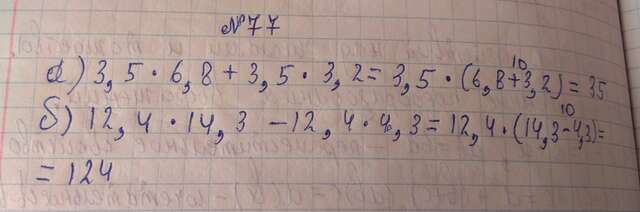 №77
а) 3,5 · 6,8 + 3,5 · 3,2 = 3,5 · (6,8 + 3,2) = 35
10
б) 12,4 · 14,3 - 12,4 · 4,3 = 12,4 · (14,3 - 4,3) =
10
= 124